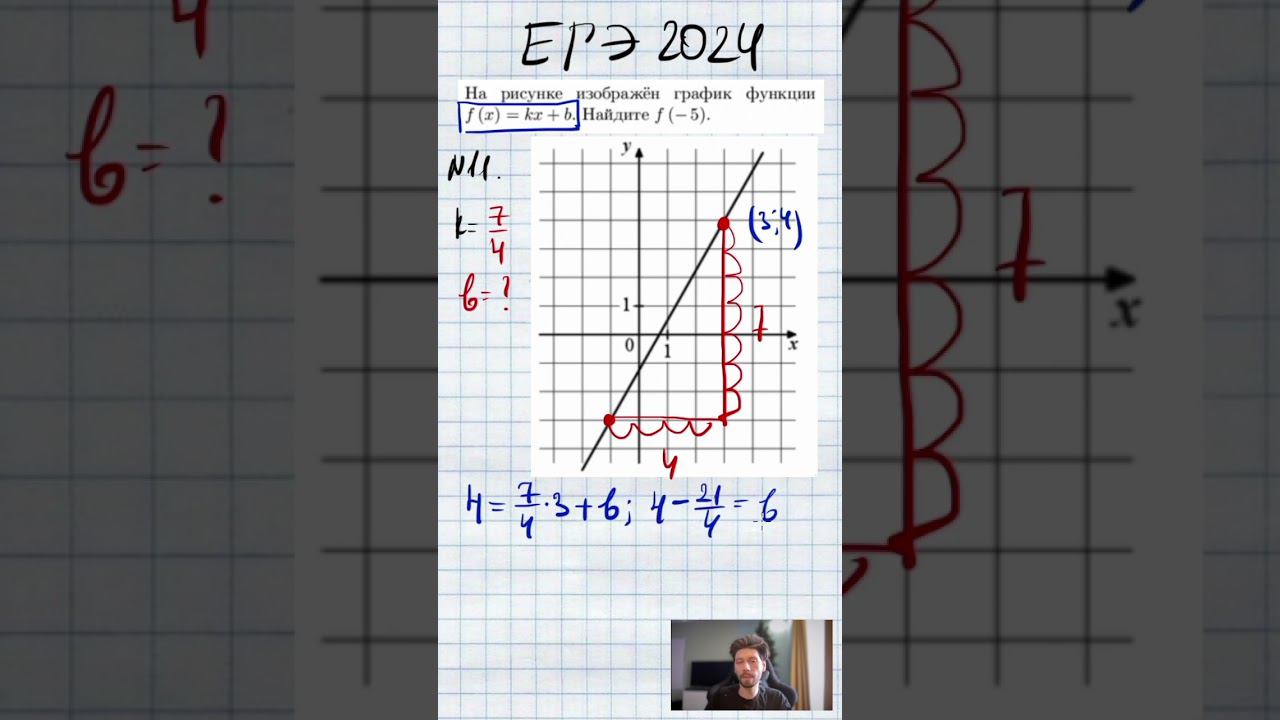 ЕГЭ 2024
На рисунке изображён график функции
f (x) = kx + b. Найдите f (−5).
N11.
k = 7/4
b = ?
y
(3;4)
1
7
0
1
x
4
4 = 7/4 · 3 + b; 4 − 21/4 = b
4
b = ?
7
x